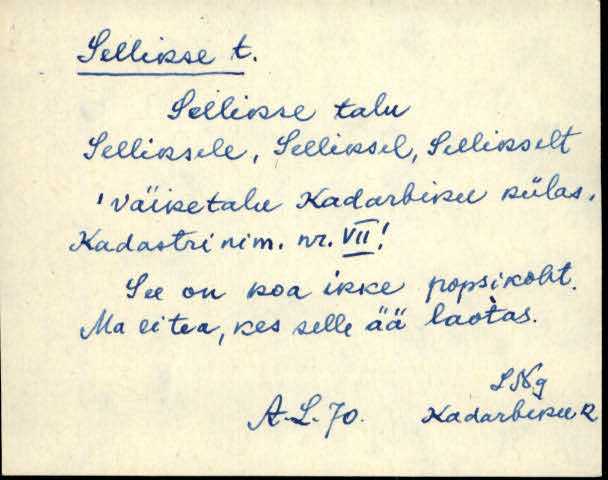 Sellikse t.
Sellikse talu
Selliksele, Selliksel, Sellikselt
'väiketalu Kadarbiku külas.
Kadastri nim. nr. VII!
See on koa ikke popsikoht.
Ma ei tea, kes selle ää laotas.
LNg
A.L. 70. Kadarbiku R